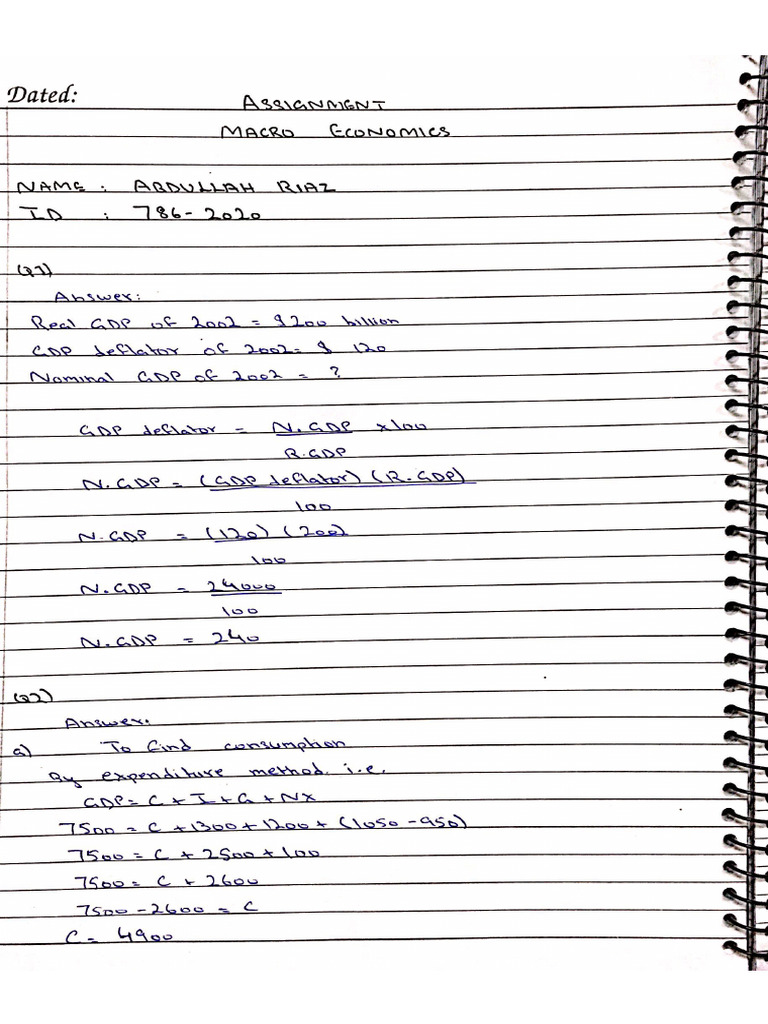 Dated:
ASSIGNMENT
MACRO ECONOMICS
NAME : ABDULLAH RIAZ
ID : 786-2020
Q1)
Answer:
Real GDP of 2002 = $200 billion
GDP deflator of 2002= $ 120
Nominal GDP of 2002 = ?
GDP deflator = N.GDP x100
R.GDP
N.GDP = (GDP deflator) (R.GDP)
100
N.GDP = (120) (200)
100
N.GDP = 24000
100
N.GDP = 240
Q2)
Answer.
a) To find consumption
By expenditure method. i.e.
GDP= C + I + G + NX
7500 = C +1300+1200+(1050-950)
7500 = C + 2500+100
7500= C + 2600
7500-2600 = C
C= 4900